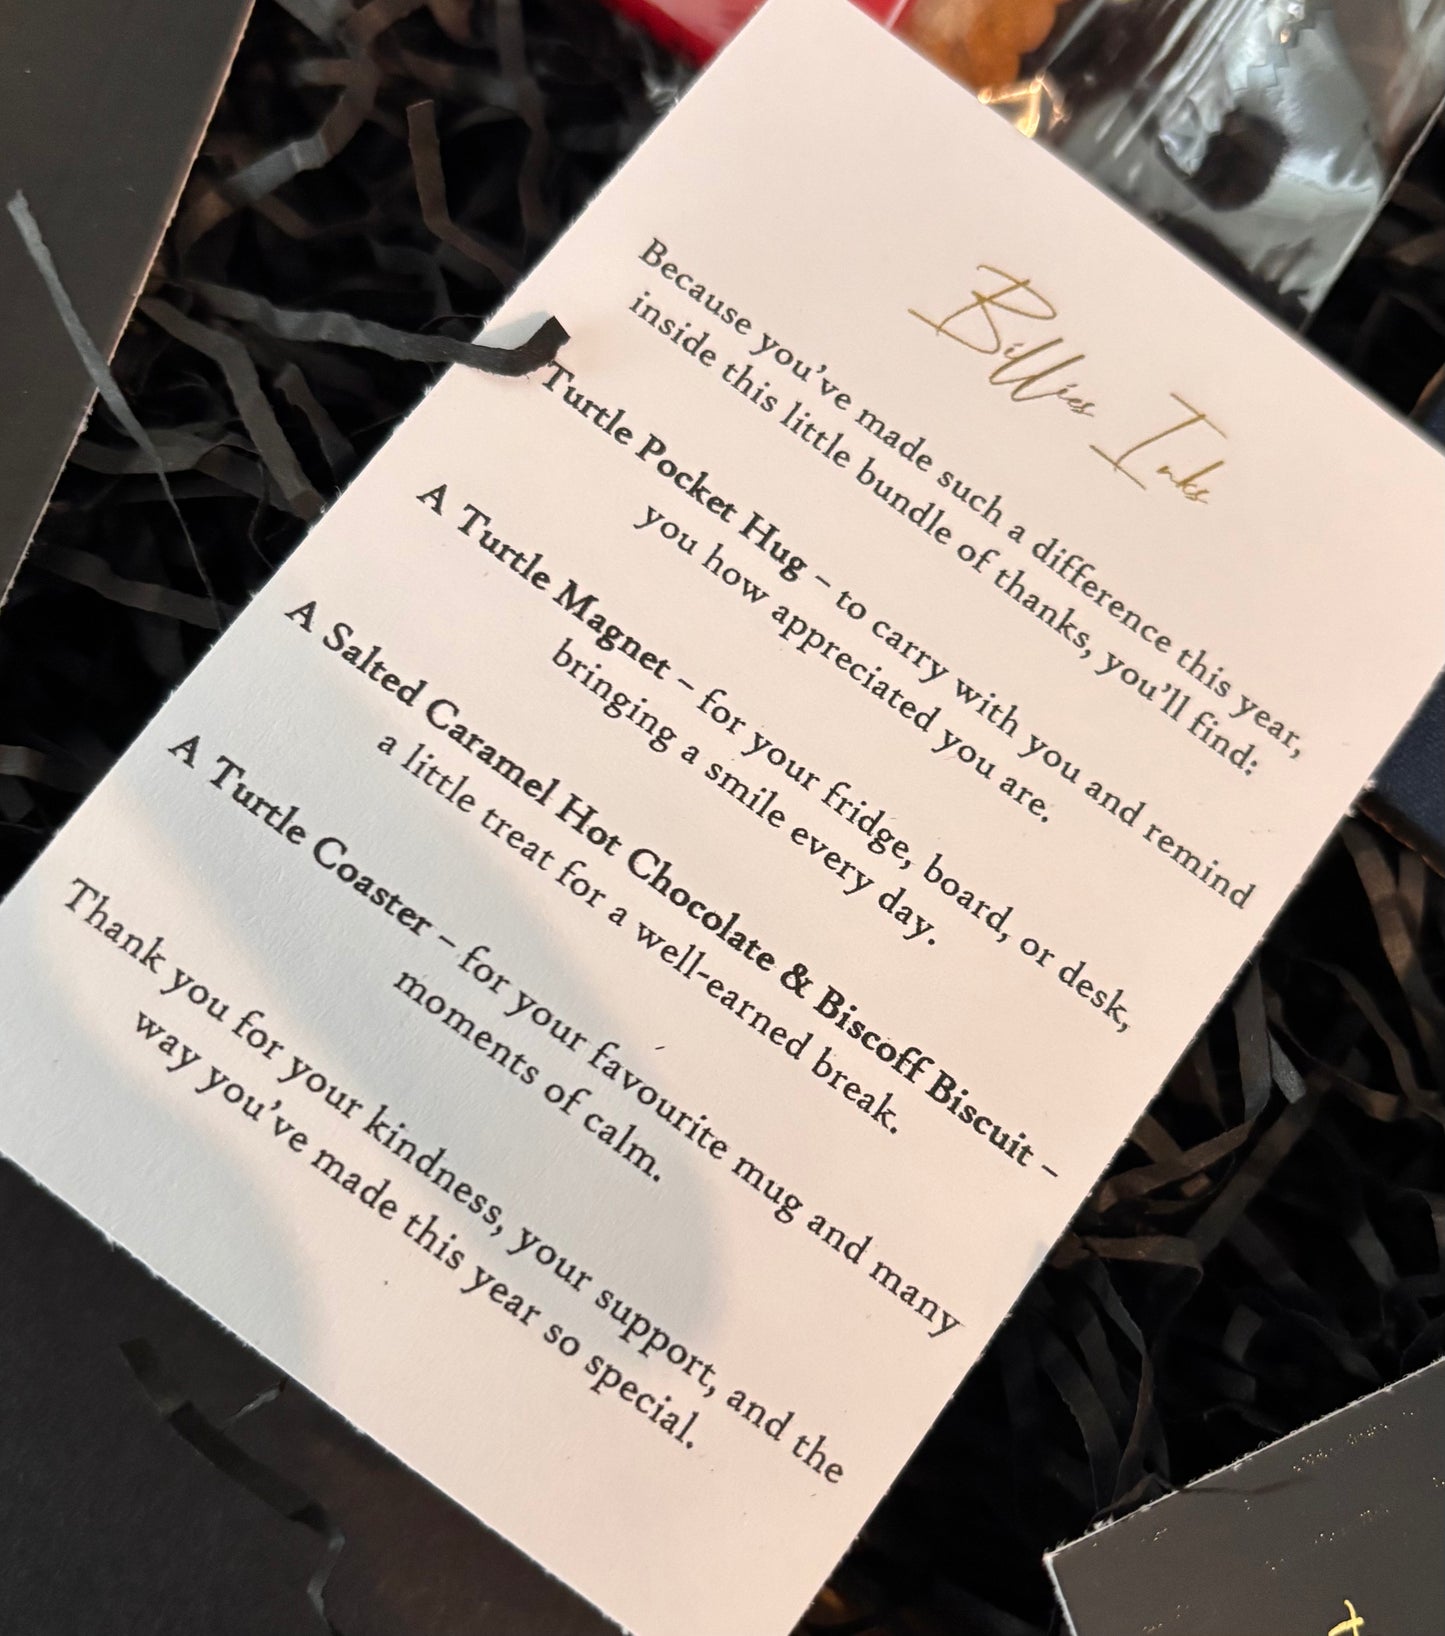 Billies Inks
Because you've made such a difference this year,
inside this little bundle of thanks, you'll find:
Turtle Pocket Hug – to carry with you and remind
you how appreciated you are.
A Turtle Magnet – for your fridge, board, or desk,
bringing a smile every day.
A Salted Caramel Hot Chocolate & Biscoff Biscuit –
a little treat for a well-earned break.
A Turtle Coaster – for your favourite mug and many
moments of calm.
Thank you for your kindness, your support, and the
way you've made this year so special.